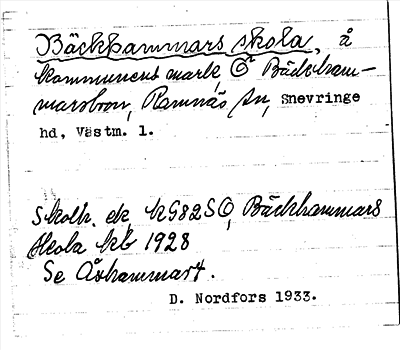 Bäckhammars skola, å
kommunens mark, Ö Bäckham-
marsbron, Ramnäs sn, Snevringe
hd, Västm. l.
Skolh. ek 1982 SO, Bäckhammars
skola kb 1928
Se Åshammar 4.
D. Nordfors 1933.